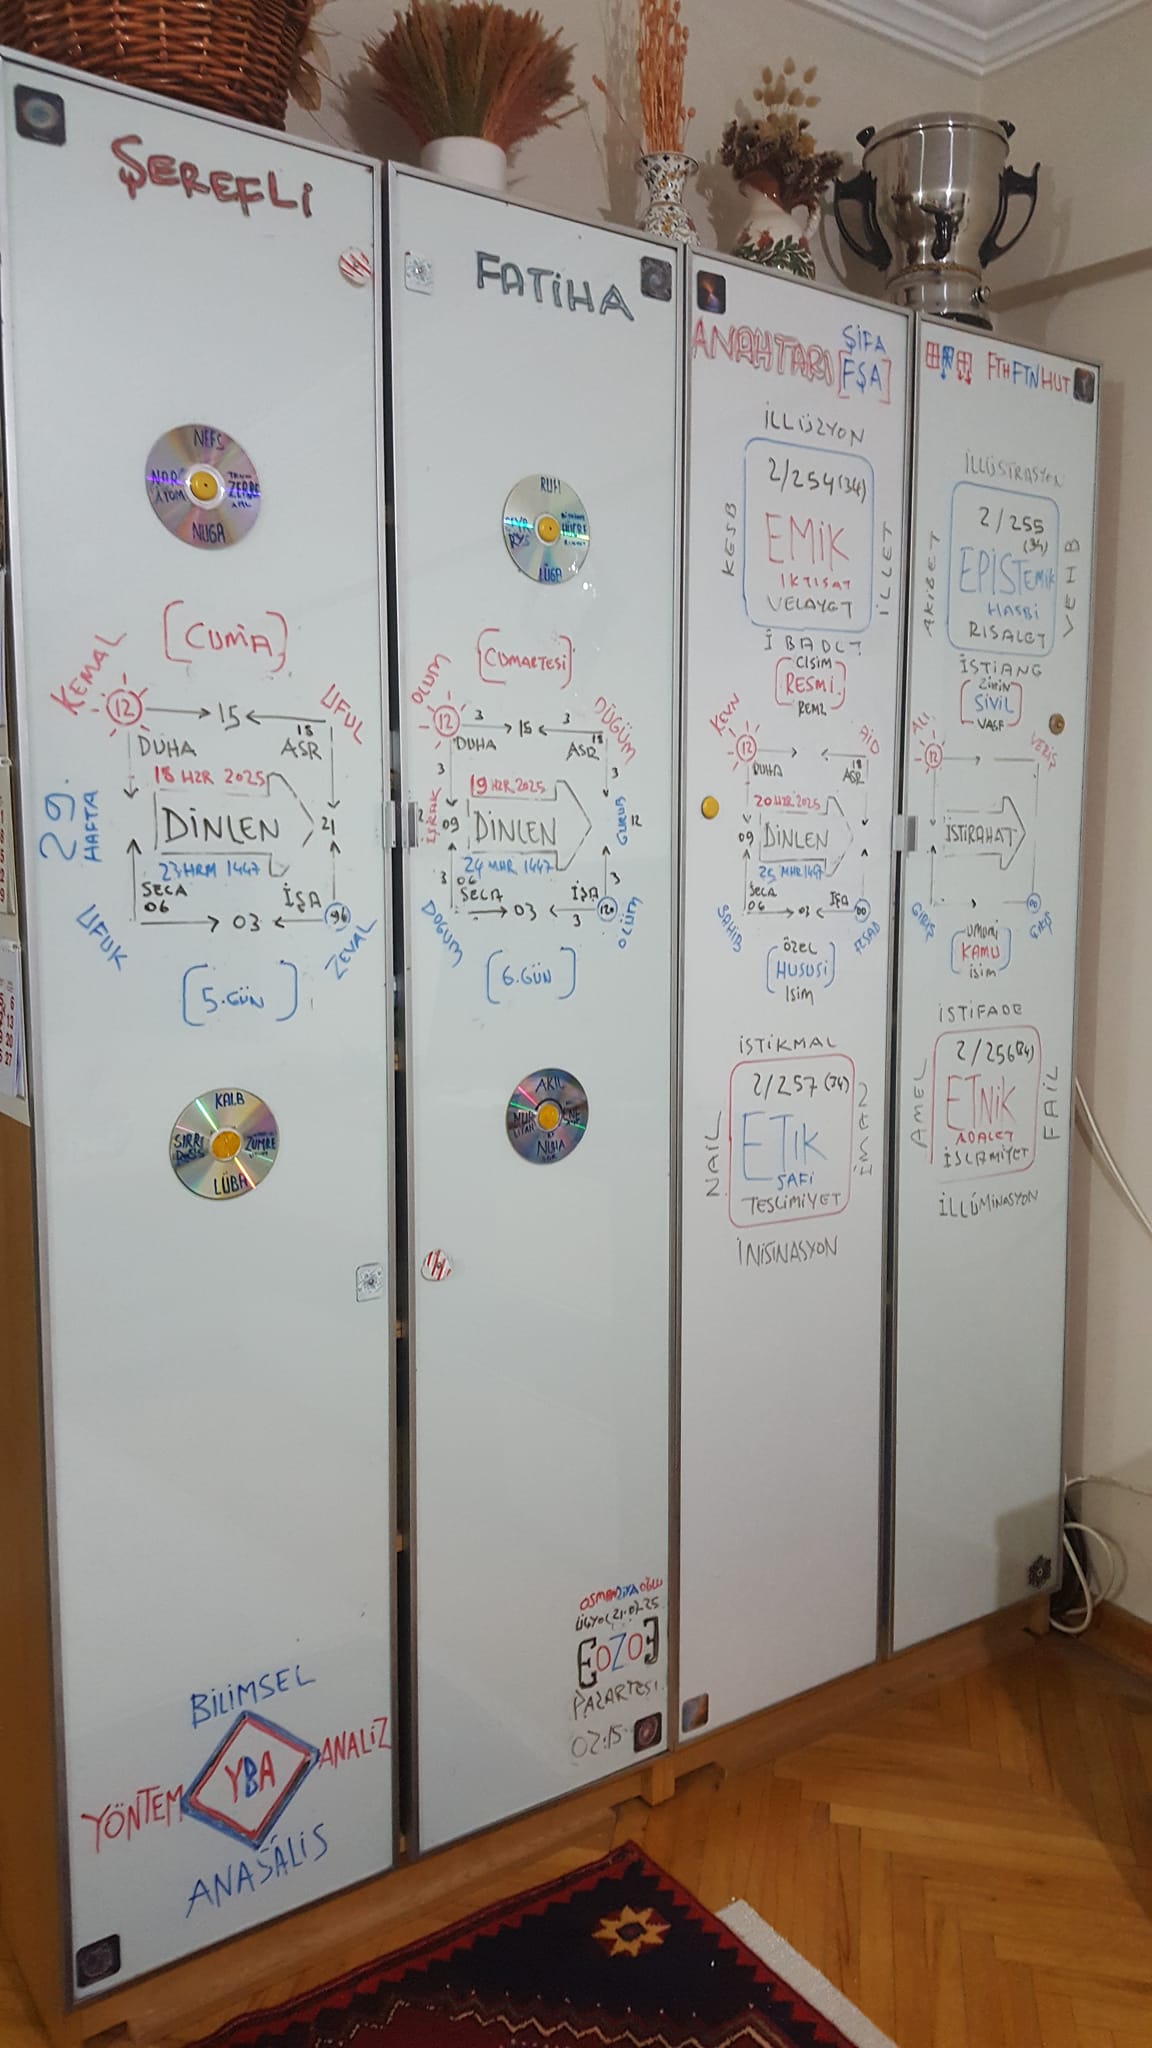 ŞEREFLİ
NEFS
NUGA
[CUMA]
KEMAL
UFUL
12
15
18
DUHA
ASR
18 HZR 2025
29.
HAFTA
DİNLEN
21
23 HRM 1447
SECA
06
İŞA
03
96
UFUK
ZEVAL
[5.GÜN]
KALB
SIRRI
ZÜMRE
LÜBA
BİLİMSEL
YÖNTEM
YBA
ANALİZ
ANASÂLİS
FATİHA
RUH
LÜGA
[CUMARTESİ]
OLUM
DÜĞÜM
12
3
15
3
18
DUHA
ASR
3
3
19 HZR 2025
İŞRAK
09
DİNLEN
GURUB
12
24 MHR 1447
3
06
SECA
İŞA
3
03
3
120
DOĞUM
ÖLÜM
[6.GÜN]
AKIL
OSMANZİYAOĞLU
ÜİGYO(21.07.25
[EOZOE]
PAZARTESİ
02:15
ANAHTARI
ŞİFA
[FŞA]
İLLÜZYON
KESB
2/254(34)
EMİK
İKTİSAT
VELAYET
İLLET
İBADET
CİSİM
[RESMİ]
REMZ
KEVN
AİD
12
DUHA
18
ASR
20 HZR 2025
09
DİNLEN
25 MHR 1447
SECA
06
İŞA
03
00
SAHİB
ÖZEL
[HUSUSİ]
İSİM
İSTİKMAL
NAİL
2/257(34)
ETİK
SAFİ
TESLİMİYET
İMAN
İNİSİNASYON
FTHFTNHUT
İLLÜSTRASYON
AKİBET
2/255
(34)
EPİSTEMİK
HASBİ
RİSALET
VEHB
İSTİANG
ZİHİN
[SİVİL]
VASF
ALI
VERİŞ
12
İSTİRAHAT
GİRİŞ
UMUMİ
[KAMU]
İSİM
İSTİFADE
AMEL
2/256(34)
ETNİK
ADALET
İSLAMİYET
FAİL
İLLÜMİNASYON